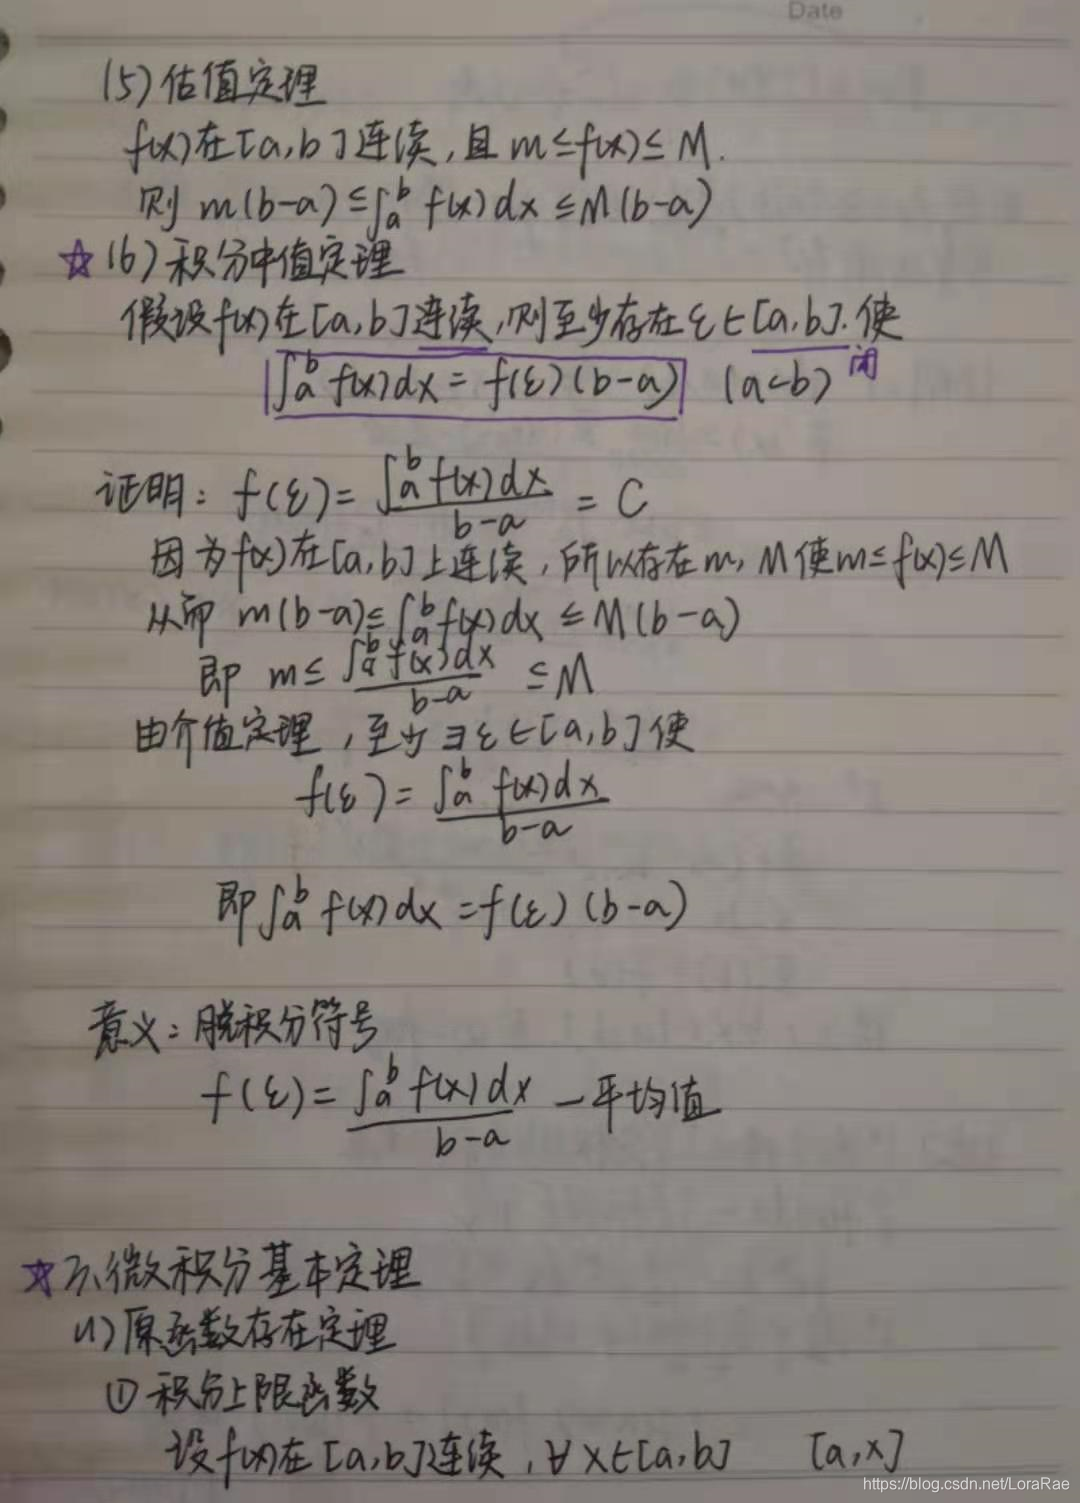 Date
(5)估值定理
f(x)在[a,b]连续,且 m≤f(x)≤M.
则 m(b-a)≤∫ₐᵇ f(x)dx≤M(b-a)
☆(6)积分中值定理
假设f(x)在[a,b]连续,则至少存在ξ∈[a,b].使
闭
∫ₐᵇ f(x)dx = f(ξ)(b-a) (a<b)
证明: f(ξ)= ∫ₐᵇ f(x)dx / b-a = C
因为f(x)在[a,b]上连续,所以存在m,M使m≤f(x)≤M
从而 m(b-a)≤∫ₐᵇ f(x)dx ≤M(b-a)
即 m≤ ∫ₐᵇ f(x)dx / b-a ≤M
由介值定理,至少∃ξ∈[a,b]使
f(ξ)= ∫ₐᵇ f(x)dx / b-a
即∫ₐᵇ f(x)dx=f(ξ)(b-a)
意义:脱积分符号
f(ξ)= ∫ₐᵇ f(x)dx / b-a —平均值
☆三、微积分基本定理
(1)原函数存在定理
①积分上限函数
设f(x)在[a,b]连续,∀x∈[a,b] [a,x]
https://blog.csdn.net/LoraRae